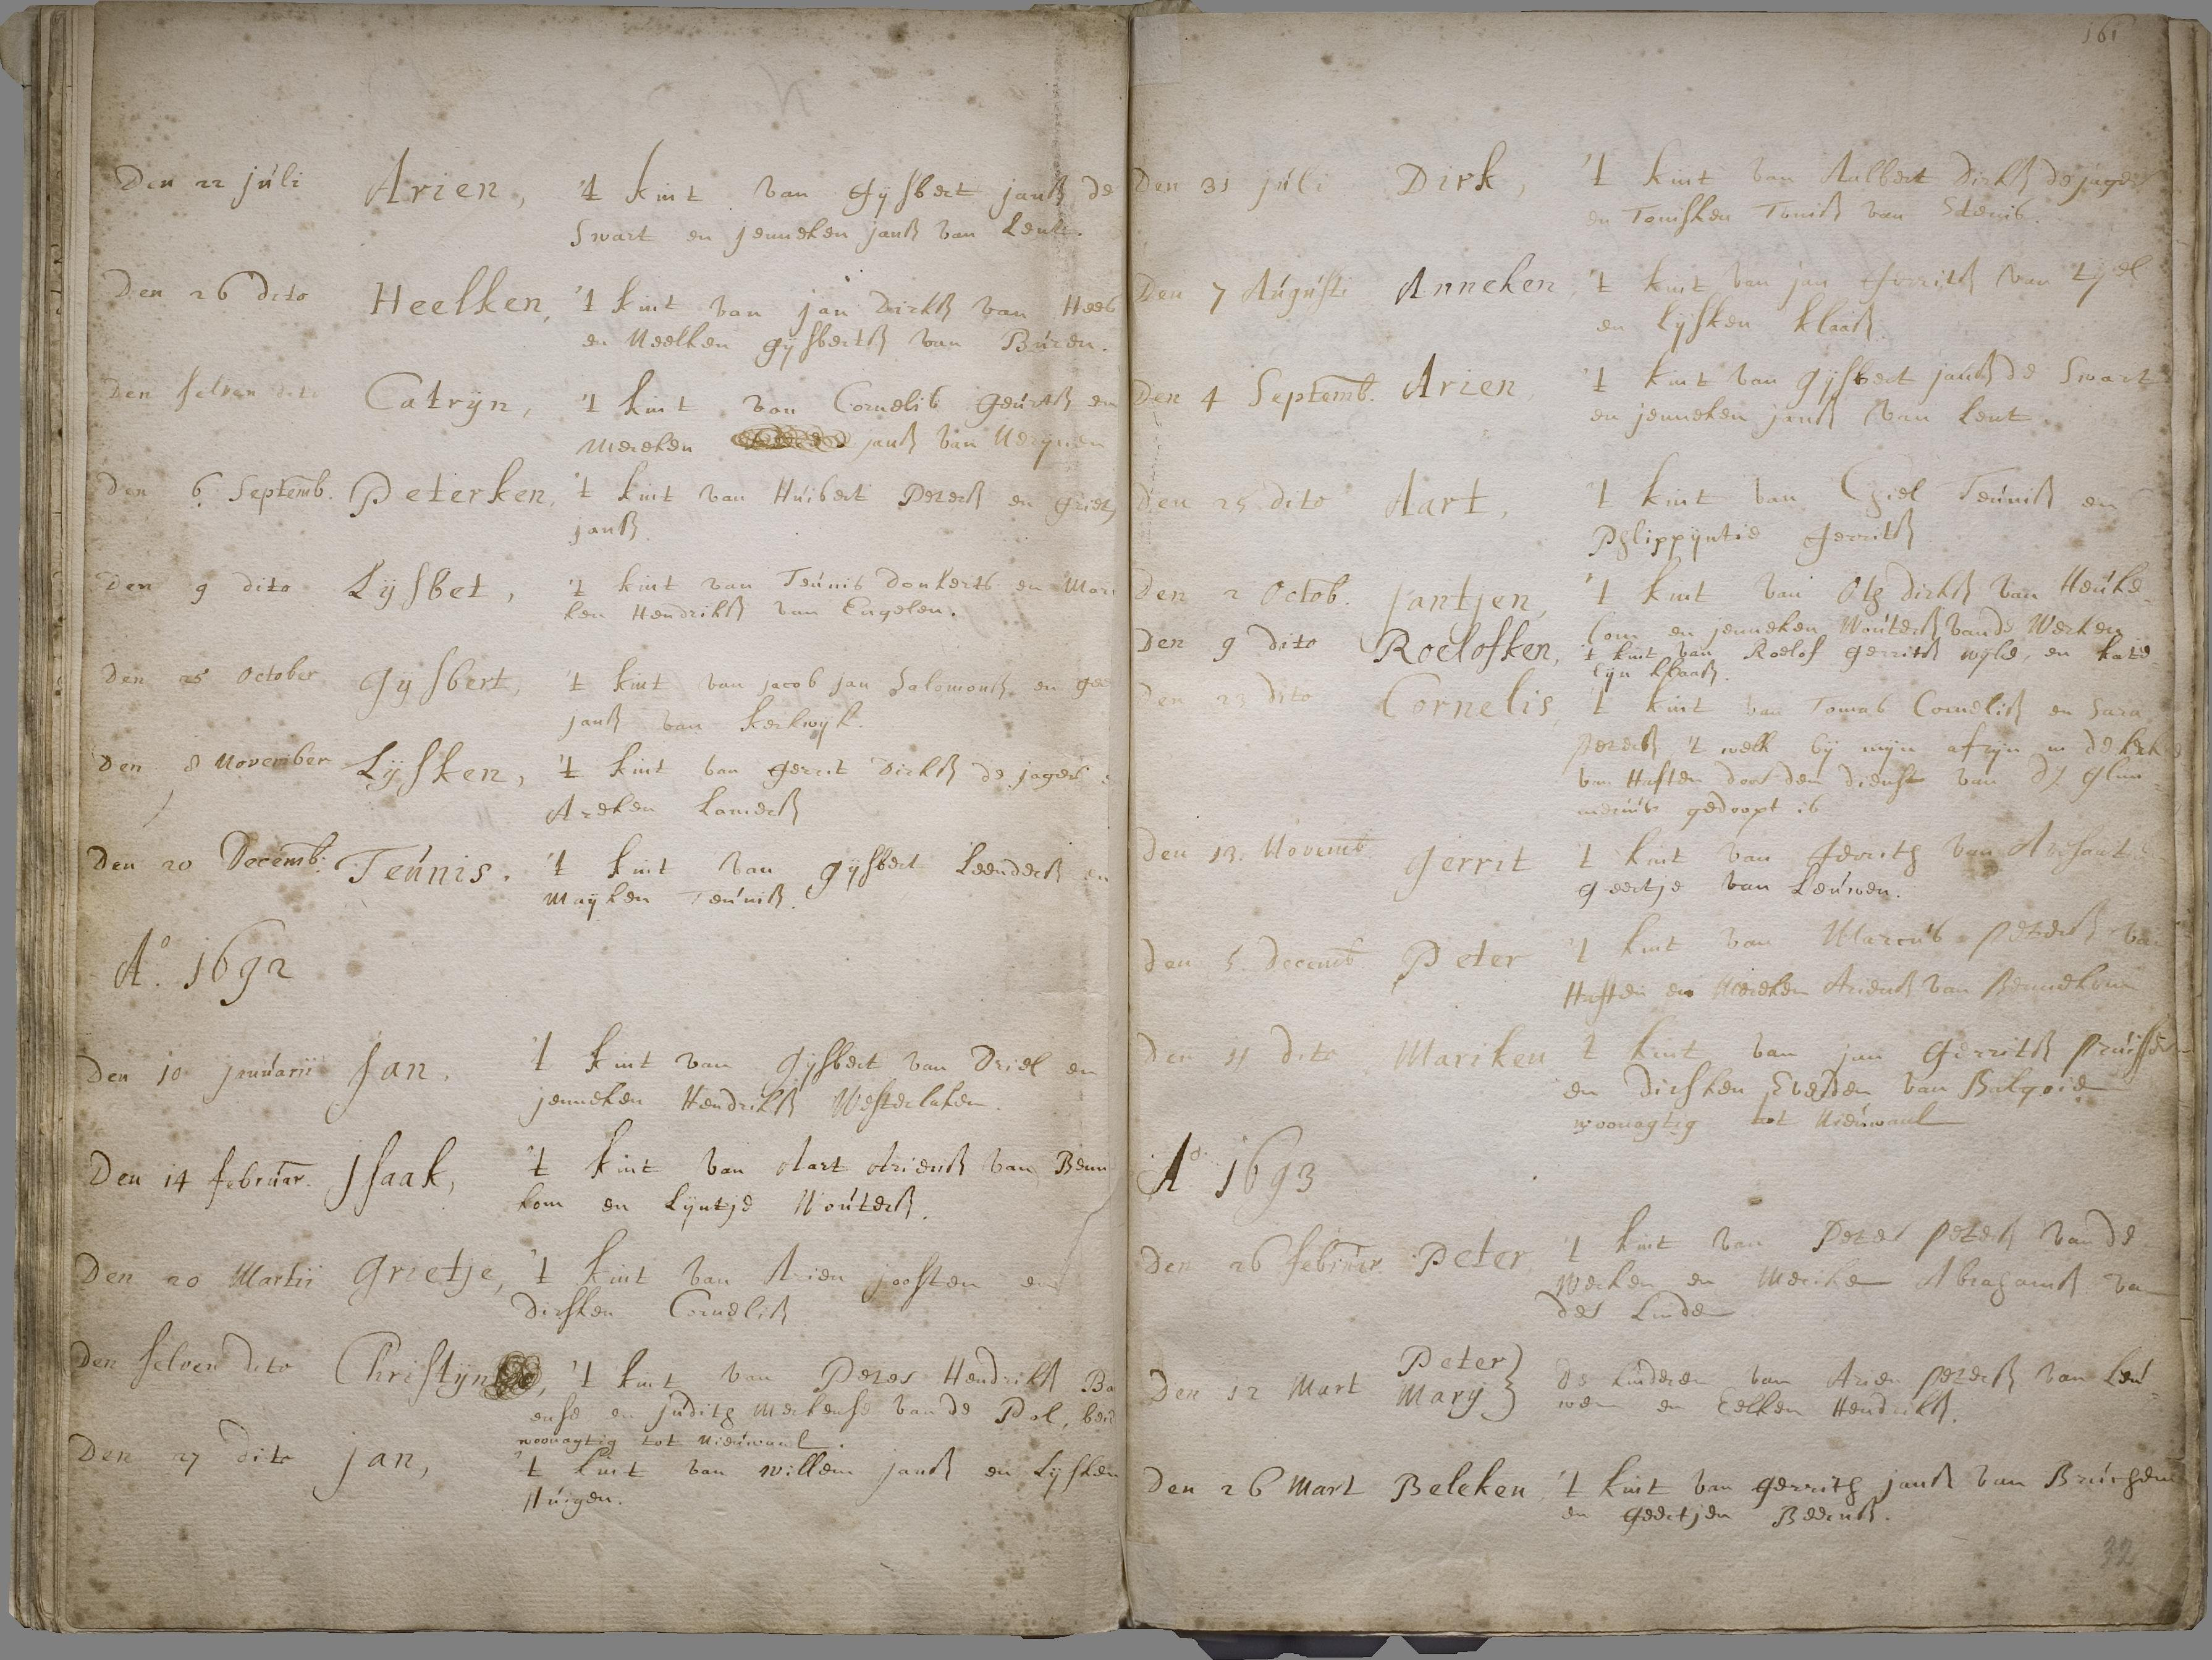 Den 22 júli Arien, 't kint van Gijsbert janß de
Swart en jenneken janß van Lent.
Den 26 dito Heelken, 't kint van jan Dirkß van Hees
en Neelken gijsbertß van Búren.
Den selven dito Catrijn, 't kint van Cornelis Geúrtß en
Mereken janß van Nerijnen
Den 6 Septemb. Peterken, 't kint van Húibert Peterß en Grietj
janß.
Den 9 dito Lijsbet, 't kint van Teúnis Donkerts en Mari
ken Hendrikß van Engelen.
Den 25 October Gijsbert, 't kint van jacob jan Salomonß en
janß van Kerkwijk.
Den 8 November Lijsken, 't kint van gerrit Dirkß de jager
Areken Lamerß
Den 20 Decemb: Teúnis. 't kint van gijsbert Leenderß en
Maijken Teúniß.
A.o 1692
Den 10 janúarii Jan. 't kint van Gijsbert van Driel en
jenneken Hendrikß Westerlaken.
Den 14 februar. Isaak, 't kint van Aart Arienß van Benn
kom en Lijntje Woúterß.
Den 20 Martii Grietje, 't kint van Arien joosten en
Dirsken Cornelisß
Den selven dito Christijn, 't kint van Peter Hendrikß Ba
ense en júdith Merkense van de Pol, beid
woonagtig tot Nieúwaal.
Den 27 dito jan, 't kint van willem janß en Lijsken
Húigen.
161
Den 31 júli Dirk, 't kint van Aalbert Dirkß de jager
en Tonisken Toniß van
Den 7 Augústi Anneken, 't kint van jan Gerritß van tijel
en Lijsken klaaß.
Den 4 Septemb. Arien, 't kint van gijsbert janß de Swart
en jenneken janß van Lent.
Den 25 dito Aart, 't kint van Chiel Teúniß en
Phlippijntie Gerritß
Den 2 Octob. Jantjen, 't kint van Oth Dirkß van Heúke-
lom en jenneken Woúterß vande Werken
Den 9 dito Roelofken, 't kint van Roelof gerritß wijld, en kate-
lijn klaaß.
Den 23 dito Cornelis, 't kint van Tomas Cornelisß en Sara
Peterß, 't welk bij mijn afzijn in de kerke
van Haften door den dienst van
gedoopt is
Den 13. Novemb. Gerrit 't kint van Gerrith van
geertje van Leúwen.
Den 5. Decemb Peter 't kint van Marcús Peterß van
Haften en Mereken Arienß van Bennekom
Den 11 dito Mariken 't kint van jan Gerritß
en Dirsken Everden van Balgoie
woonagtig tot Nieúwaal
A.o 1693
Den 26 februar. Peter, 't kint van Peter Peterß van de
Werken en Meriken Abrahamß van
der Linden
Den 12 Mart Peter
Marij } De kinderen van Arien Peterß van Leú-
wen en Eelken Hendrikß.
Den 26 Mart Beleken, 't kint van Gerrith janß van Brúchem
en Geertjen Beernß.
32